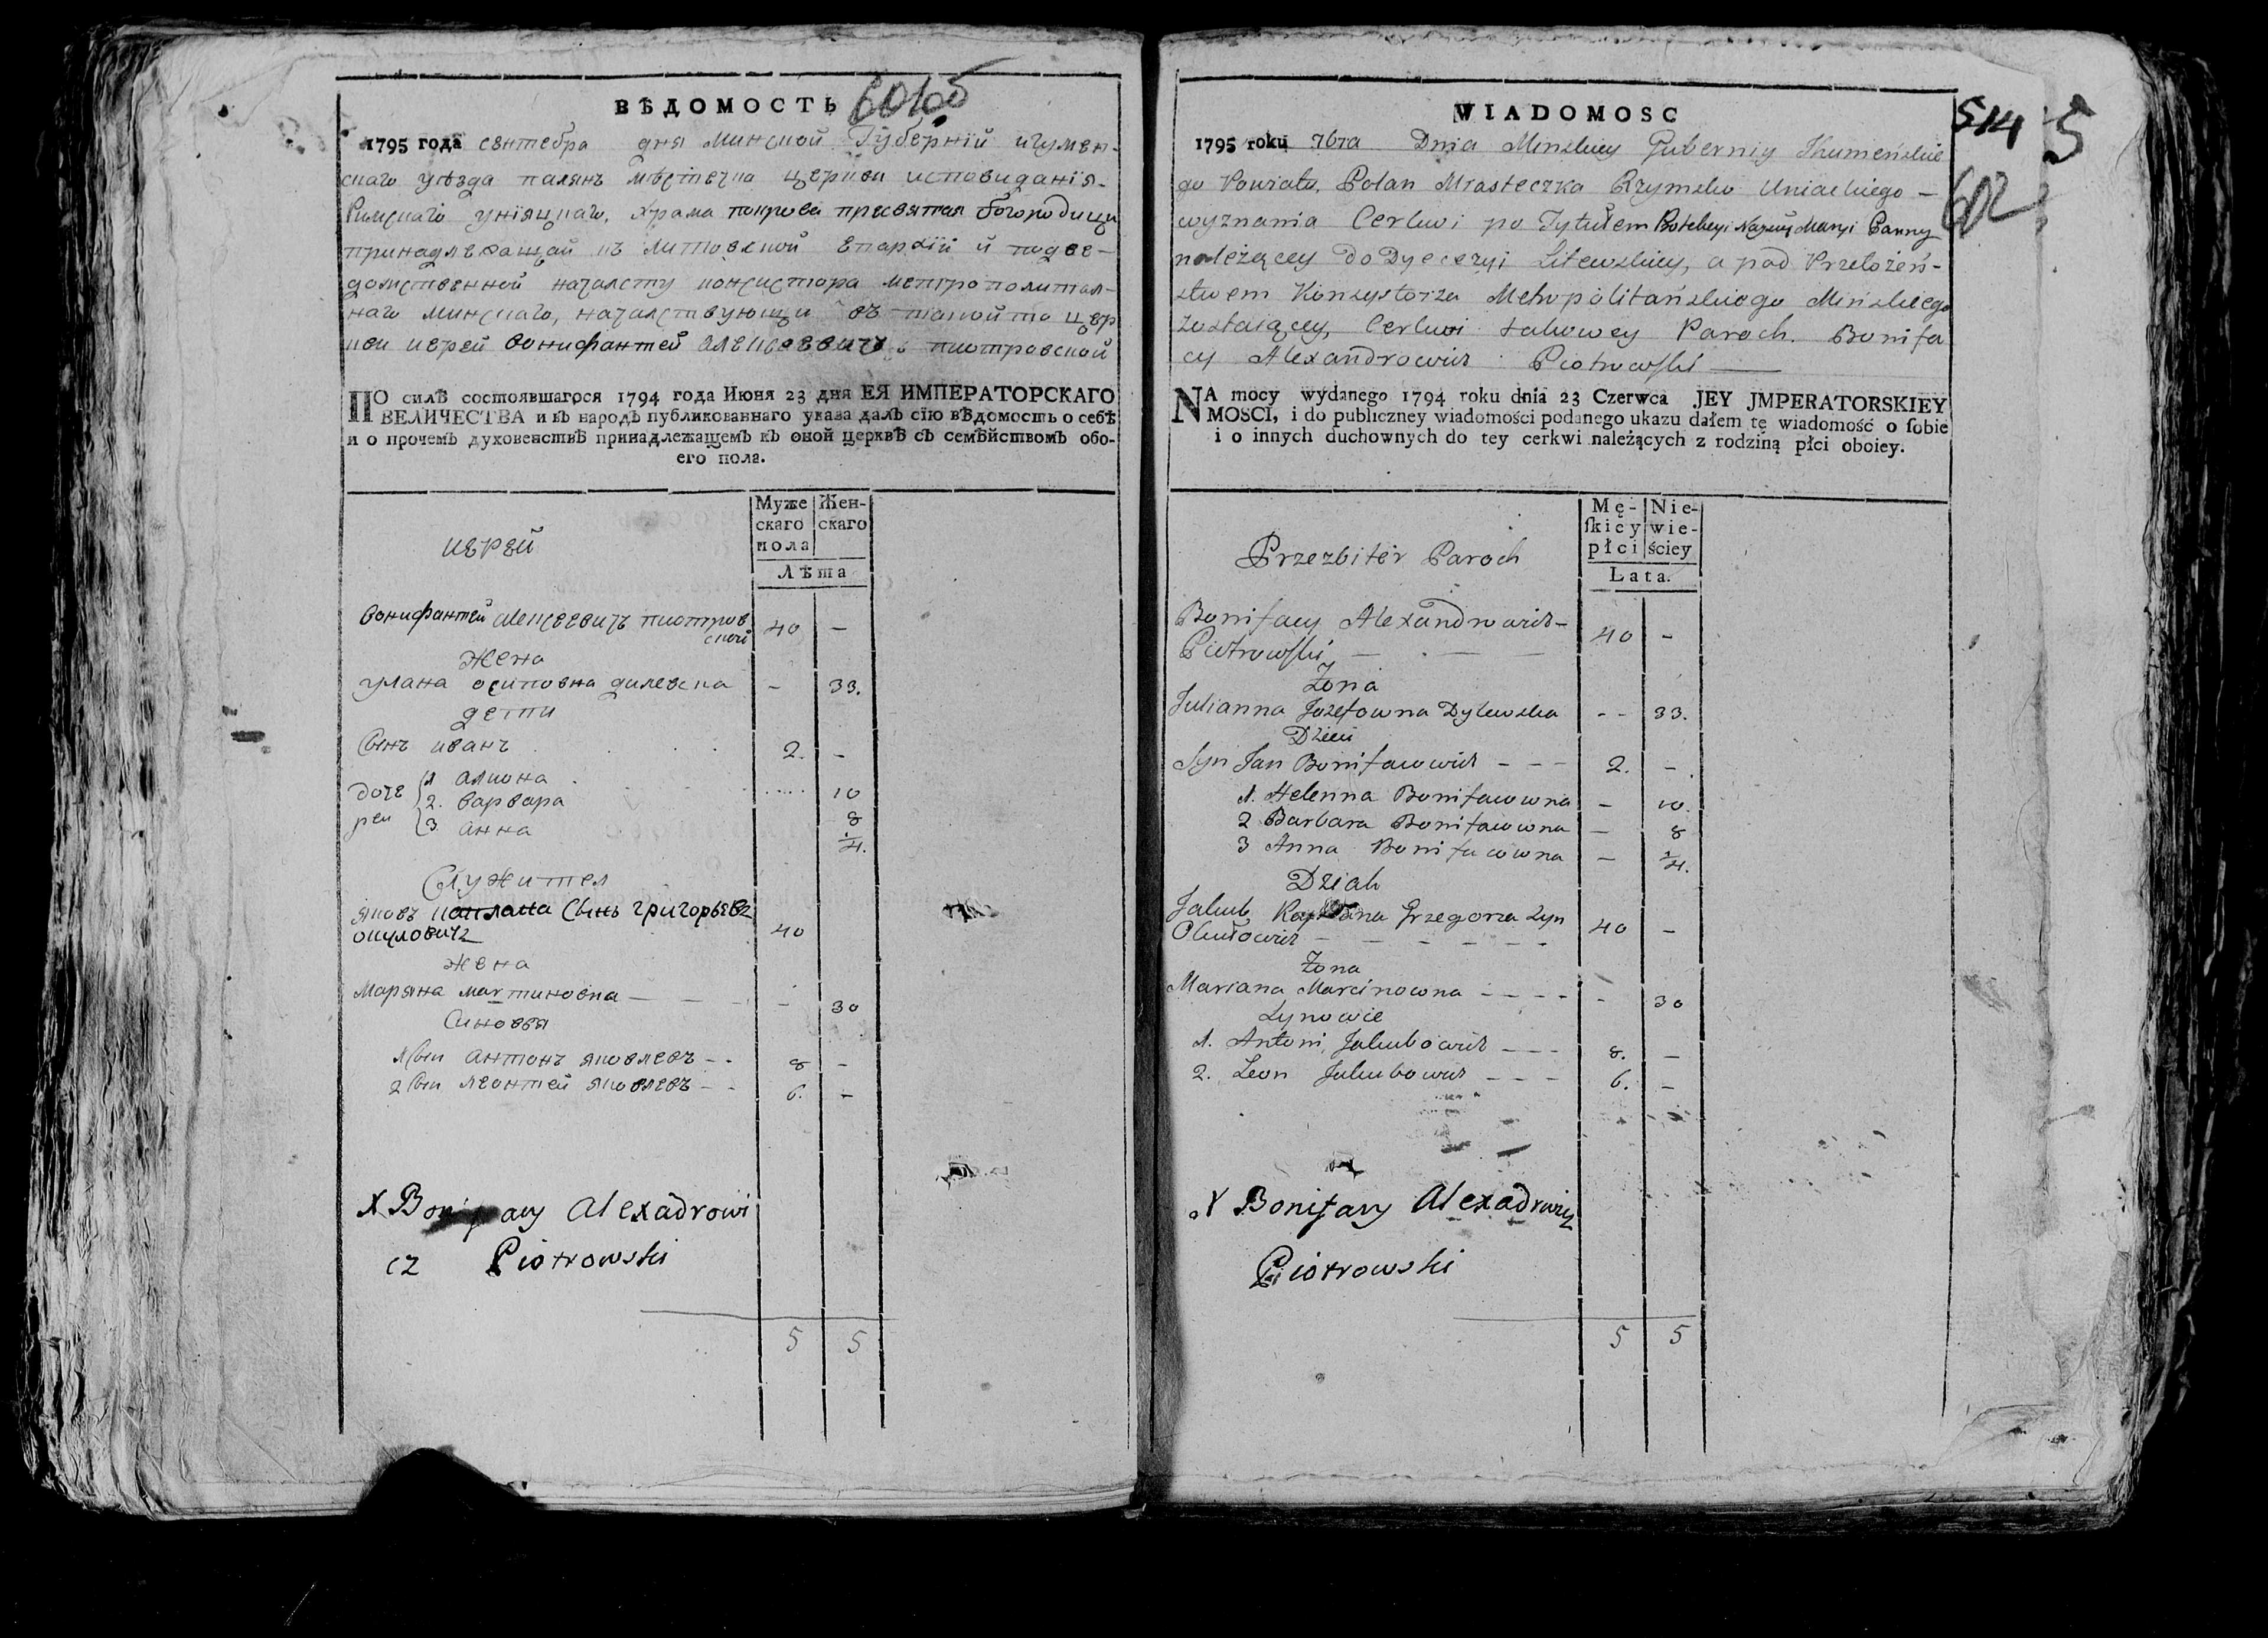 ВѢДОМОСТЬ
1795 года сентебра дня Минской Губернїи игумен-
скаго уѣзда палянъ мѣстечка церкви исповиданїя
Римскаго унїяцкаго, храма покрова пресвятая богородици
принадлежащой къ литовской епархїй и подве-
домственной началсту консистора метрополитал-
наго минскаго, началствующи въ такойто цер
кви иерей вонифантей алексеевичъ пиотровской
ПО силѣ состоявшагося 1794 года Июня 23 дня ЕЯ ИМПЕРАТОРСКАГО
ВЕЛИЧЕСТВА и въ народѣ публикованнаго указа далъ сїю вѣдомость о себѣ
и о прочемъ духовенствѣ принадлежащемъ къ оной церквѣ съ семѣйствомъ обо-
его пола.
Муже Жен-
скаго скаго
пола
Лѣта
иерей
вонифантей алексеевичъ пиотров
ской 40 –
жена
улана осиповна дилевска – 33.
дети
Сынъ иванъ 2. –
доче 1 алиона 10
2. варвара 8
реи 3 анна 1/4.
Служител
яковъ каплана сынъ григорьевъ
окуловичъ 40
жена
Марьяна мартиновна – 30
Синовья
1 сын антонъ яковлевъ 8 –
2 сын леонтей яковлевъ 6. –
X Bonifacy Alexadrowi
cz Piotrowski
5 5
514 5
602
WIADOMOSC
1795 roku 7bra Dnia Minskiey Guberniy Ihumeńskie
go Powiatu, Polan Miasteczka Rzymsko Uniackiego –
wyznania Cerkwi po Tytułem Najświę Maryi Panny
należącey do Dyecezyi Litewskiey, a pod Przełożeń-
stwem Konsystorza Metropolitańskiego Mińskiego
zostaiącey, Cerkwi takowey Paroch. Bonifa
cy Alexandrowicz Piotrowski
NA mocy wydanego 1794 roku dnia 23 Czerwca JEY JMPERATORSKIEY
MOSCI, i do publiczney wiadomości podanego ukazu dałem tę wiadomość o sobie
i o innych duchownych do tey cerkwi należących z rodziną płci oboiey.
Mę- Nie-
skiey wie-
płci ściey
Lata.
Przezbiter Paroch
Bonifacy Alexandrowicz –
Piotrowski 40 –
Żona
Julianna Jozefowna Dylewska – – 33.
Dzieci
Syn Jan Bonifacowicz – – – 2. –
1. Helenna Bonifacowna – 10.
2 Barbara Bonifacowna – 8
3 Anna Bonifacowna – 1/4.
Dziak
Jakub Kapłana Grzegorza Syn
Okułowicz 40 –
Żona
Mariana Marcinowna – – – – 30
Synowie
1. Antoni Jakubowicz – – – 8. –
2. Leon Jakubowicz – – – 6. –
X Bonifacy Alexadrwicz
Piotrowski
5 5